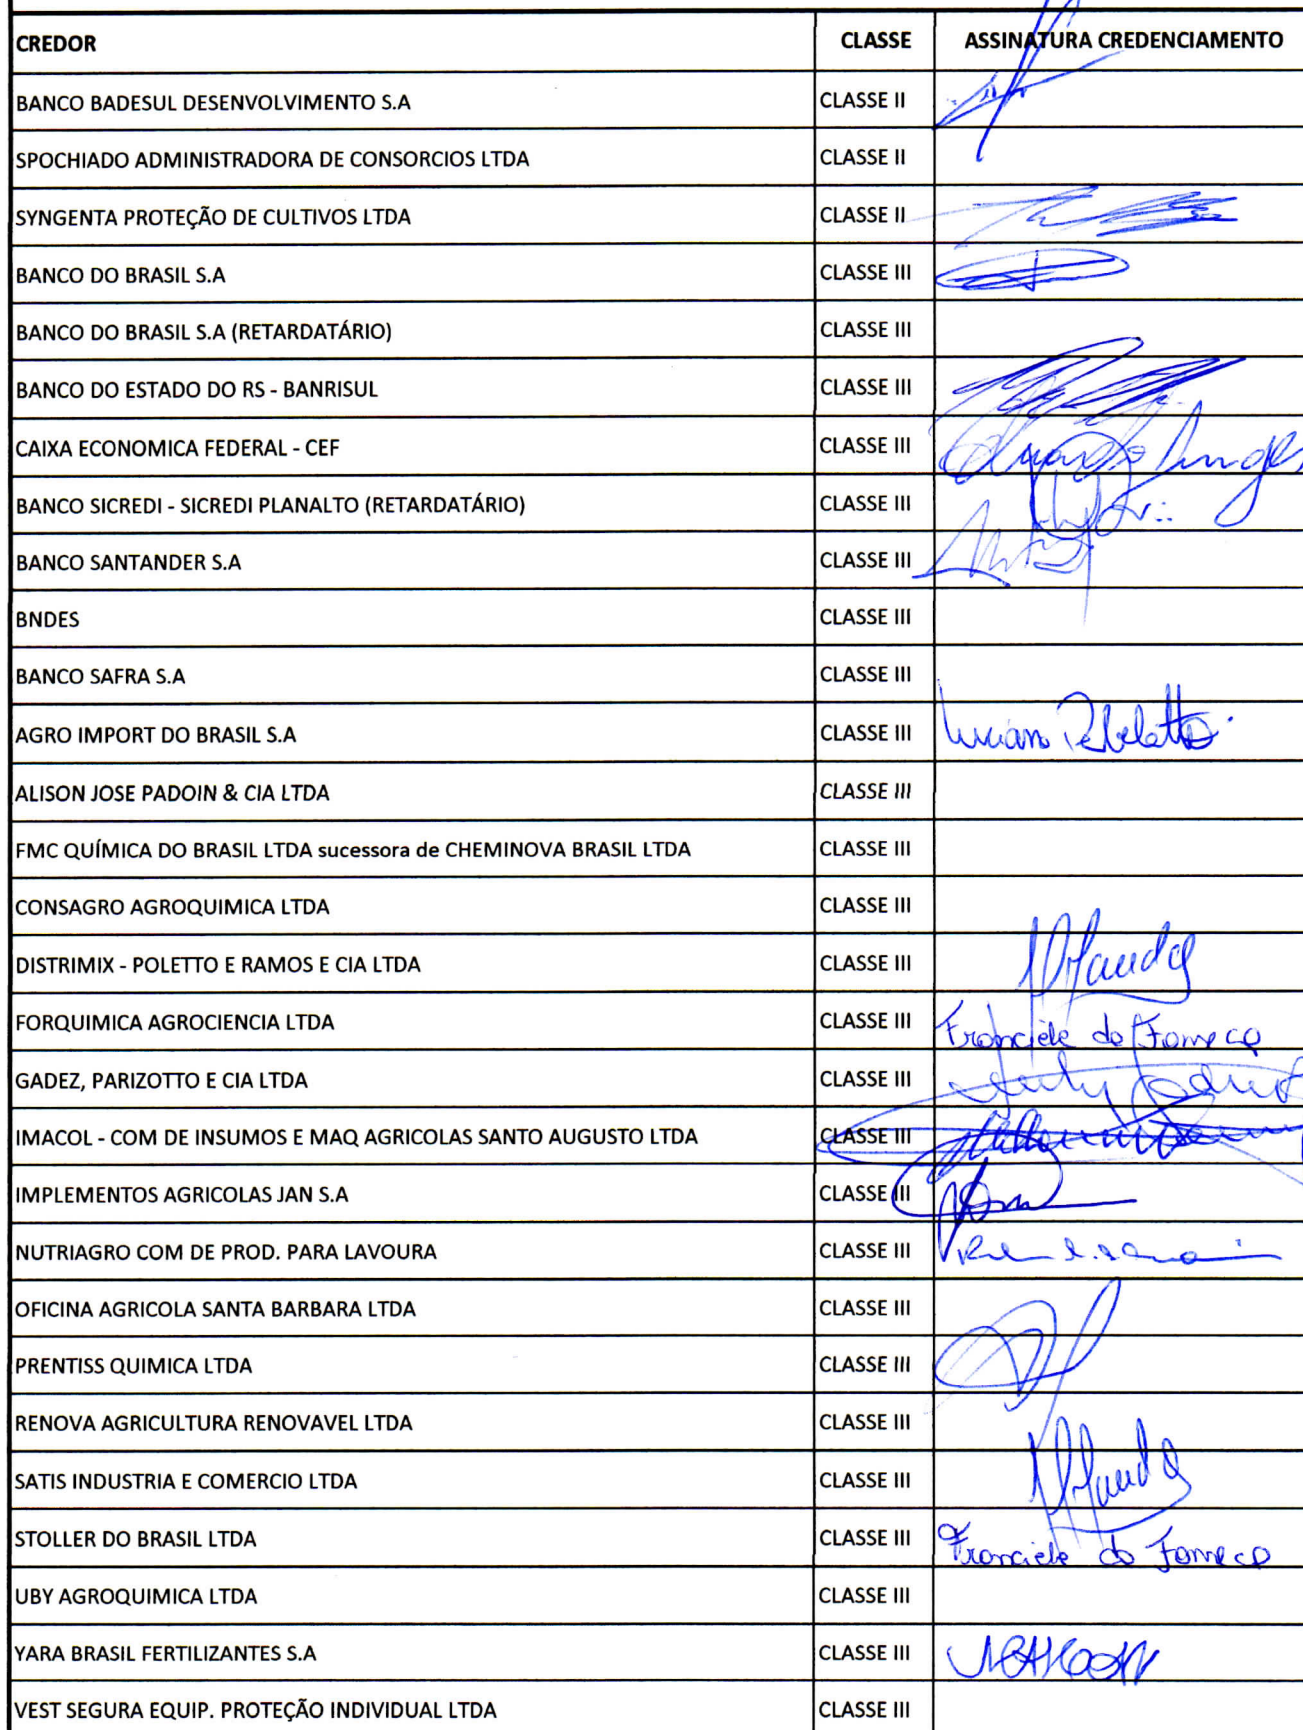 CREDOR CLASSE ASSINATURA CREDENCIAMENTO
BANCO BADESUL DESENVOLVIMENTO S.A CLASSE II
SPOCHIADO ADMINISTRADORA DE CONSORCIOS LTDA CLASSE II
SYNGENTA PROTEÇÃO DE CULTIVOS LTDA CLASSE II
BANCO DO BRASIL S.A CLASSE III
BANCO DO BRASIL S.A (RETARDATÁRIO) CLASSE III
BANCO DO ESTADO DO RS - BANRISUL CLASSE III
CAIXA ECONOMICA FEDERAL - CEF CLASSE III
BANCO SICREDI - SICREDI PLANALTO (RETARDATÁRIO) CLASSE III
BANCO SANTANDER S.A CLASSE III
BNDES CLASSE III
BANCO SAFRA S.A CLASSE III
AGRO IMPORT DO BRASIL S.A CLASSE III
ALISON JOSE PADOIN & CIA LTDA CLASSE III
FMC QUÍMICA DO BRASIL LTDA sucessora de CHEMINOVA BRASIL LTDA CLASSE III
CONSAGRO AGROQUIMICA LTDA CLASSE III
DISTRIMIX - POLETTO E RAMOS E CIA LTDA CLASSE III
FORQUIMICA AGROCIENCIA LTDA CLASSE III Franciele da Fonseca
GADEZ, PARIZOTTO E CIA LTDA CLASSE III
IMACOL - COM DE INSUMOS E MAQ AGRICOLAS SANTO AUGUSTO LTDA CLASSE III
IMPLEMENTOS AGRICOLAS JAN S.A CLASSE III
NUTRIAGRO COM DE PROD. PARA LAVOURA CLASSE III
OFICINA AGRICOLA SANTA BARBARA LTDA CLASSE III
PRENTISS QUIMICA LTDA CLASSE III
RENOVA AGRICULTURA RENOVAVEL LTDA CLASSE III
SATIS INDUSTRIA E COMERCIO LTDA CLASSE III
STOLLER DO BRASIL LTDA CLASSE III Franciele da Fonseca
UBY AGROQUIMICA LTDA CLASSE III
YARA BRASIL FERTILIZANTES S.A CLASSE III
VEST SEGURA EQUIP. PROTEÇÃO INDIVIDUAL LTDA CLASSE III